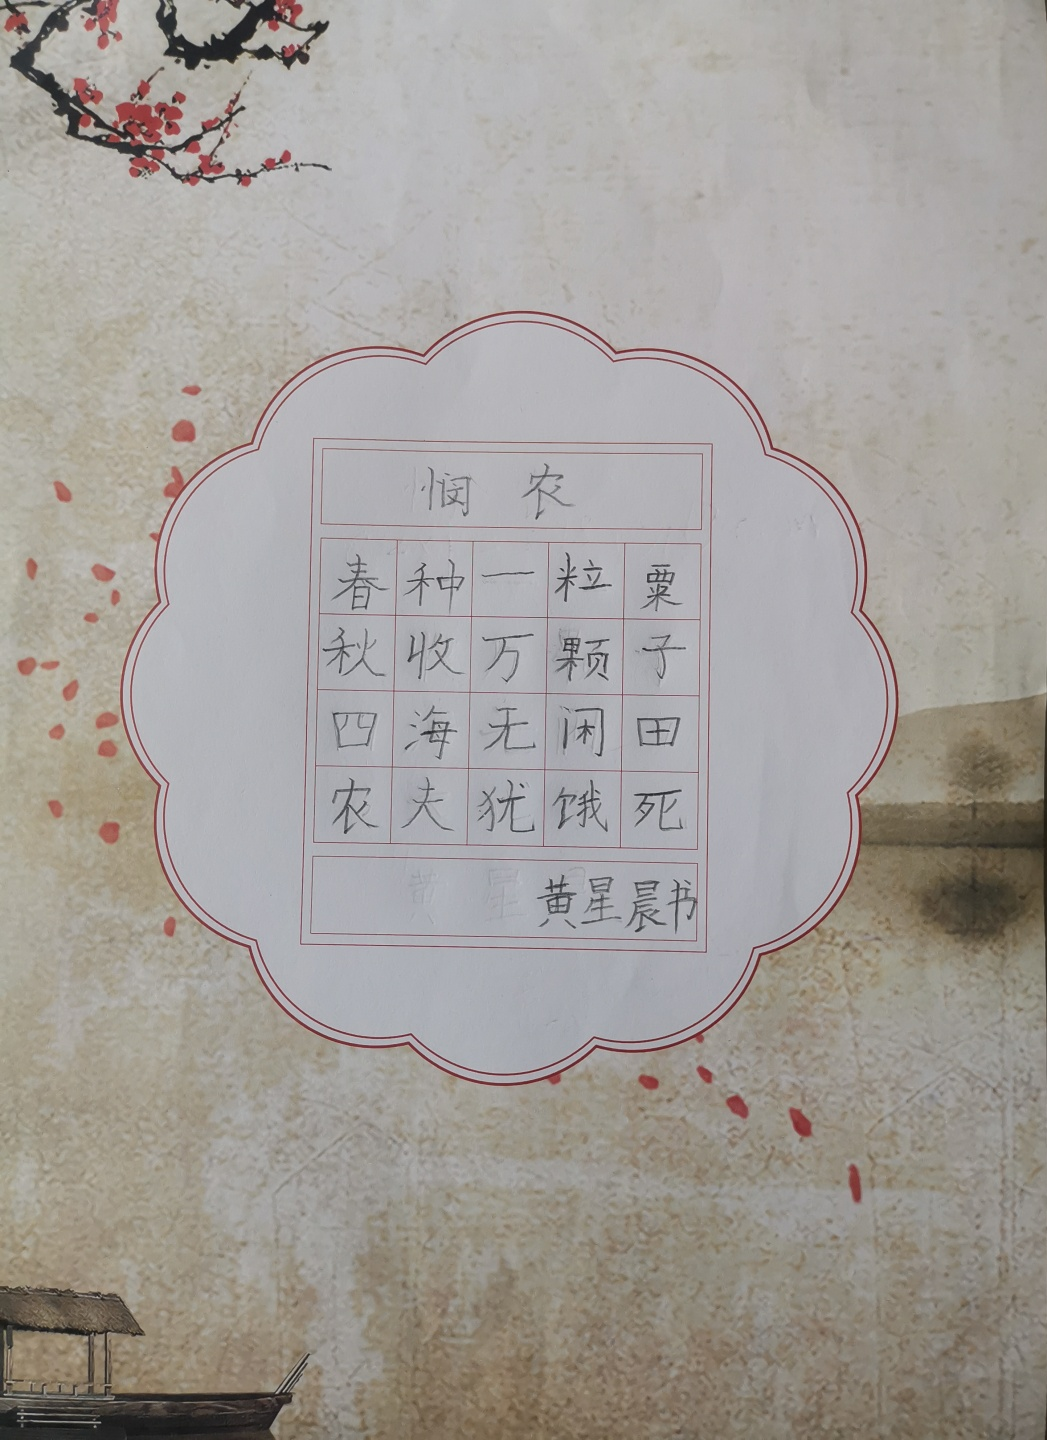 悯农
春种一粒粟
秋收万颗子
四海无闲田
农夫犹饿死
黄星晨书